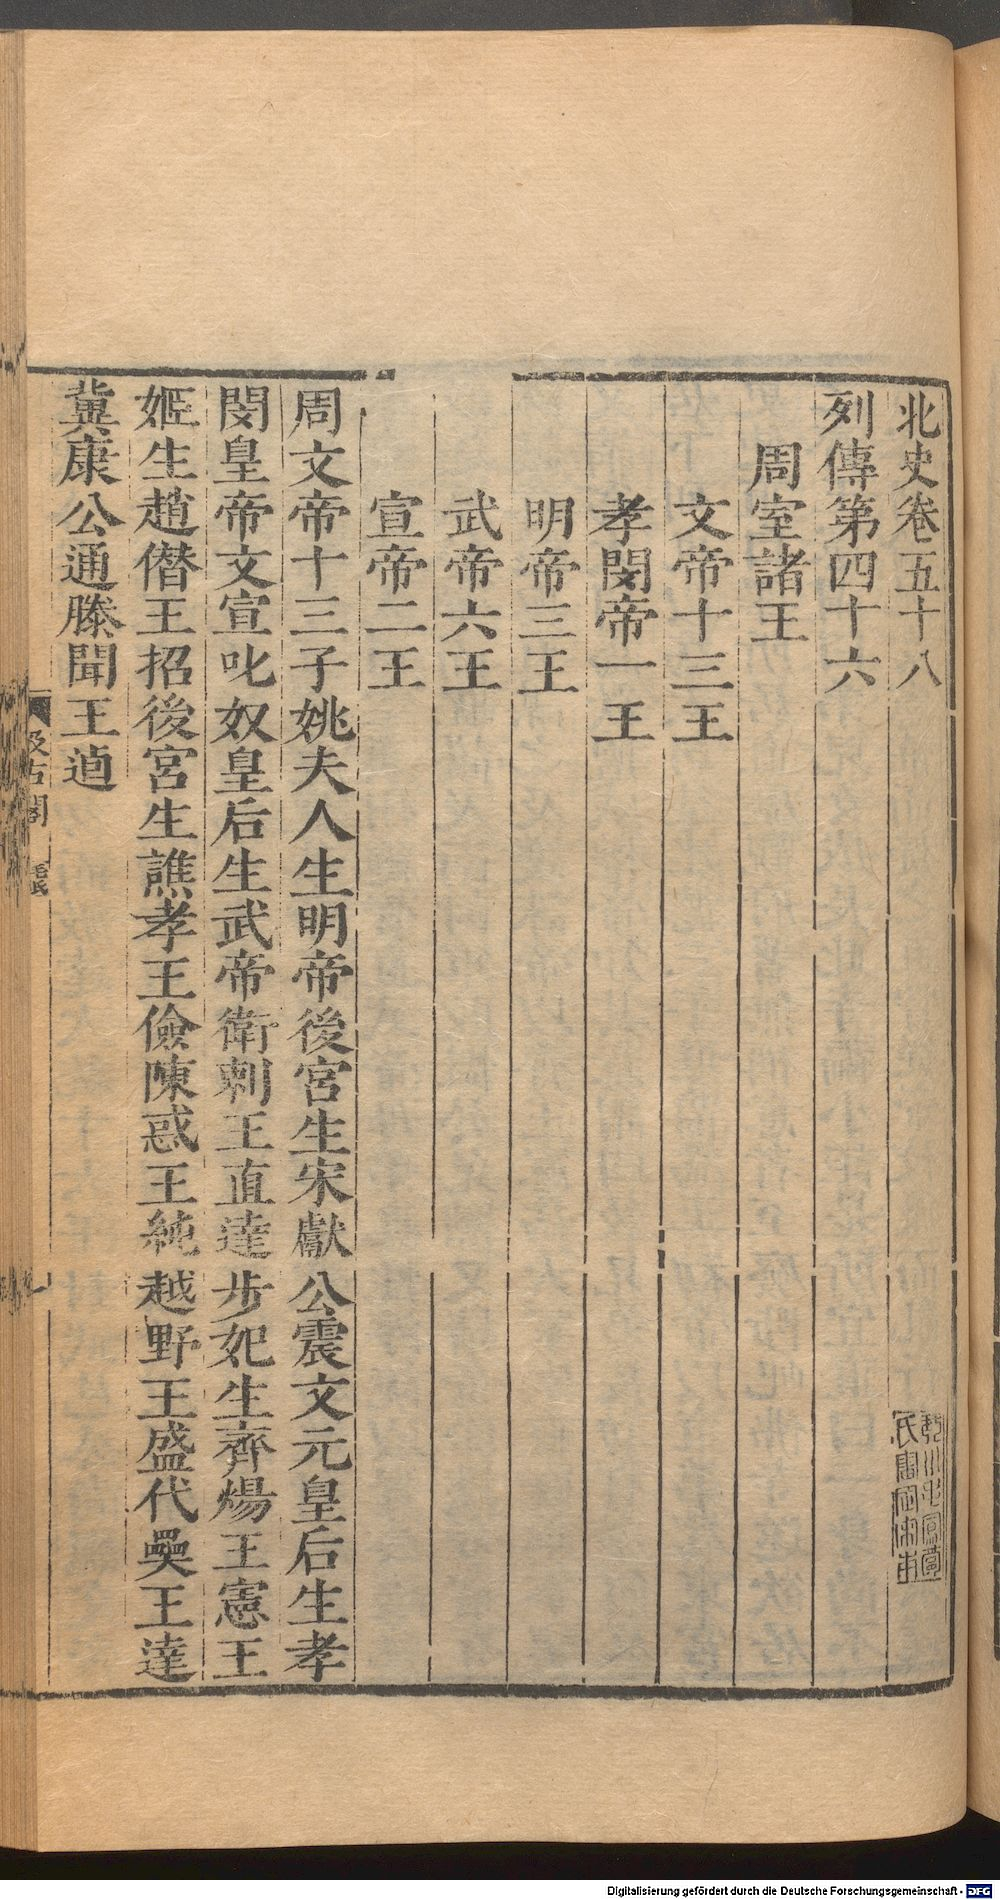 北史卷五十八
列傳第四十六
周室諸王
文帝十三王
孝閔帝一王
明帝三王
武帝六王
宣帝二王
周文帝十三子姚夫人生明帝後宮生宋獻公震文元皇后生孝
閔皇帝文宣叱奴皇后生武帝衛刺王直達步妃生齊煬王憲王
姬生趙僭王招後宮生譙孝王儉陳惑王純越野王盛代奰王達
冀康公通滕聞王逌
汲古閣
毛氏
Digitalisierung gefördert durch die Deutsche Forschungsgemeinschaft - DFG